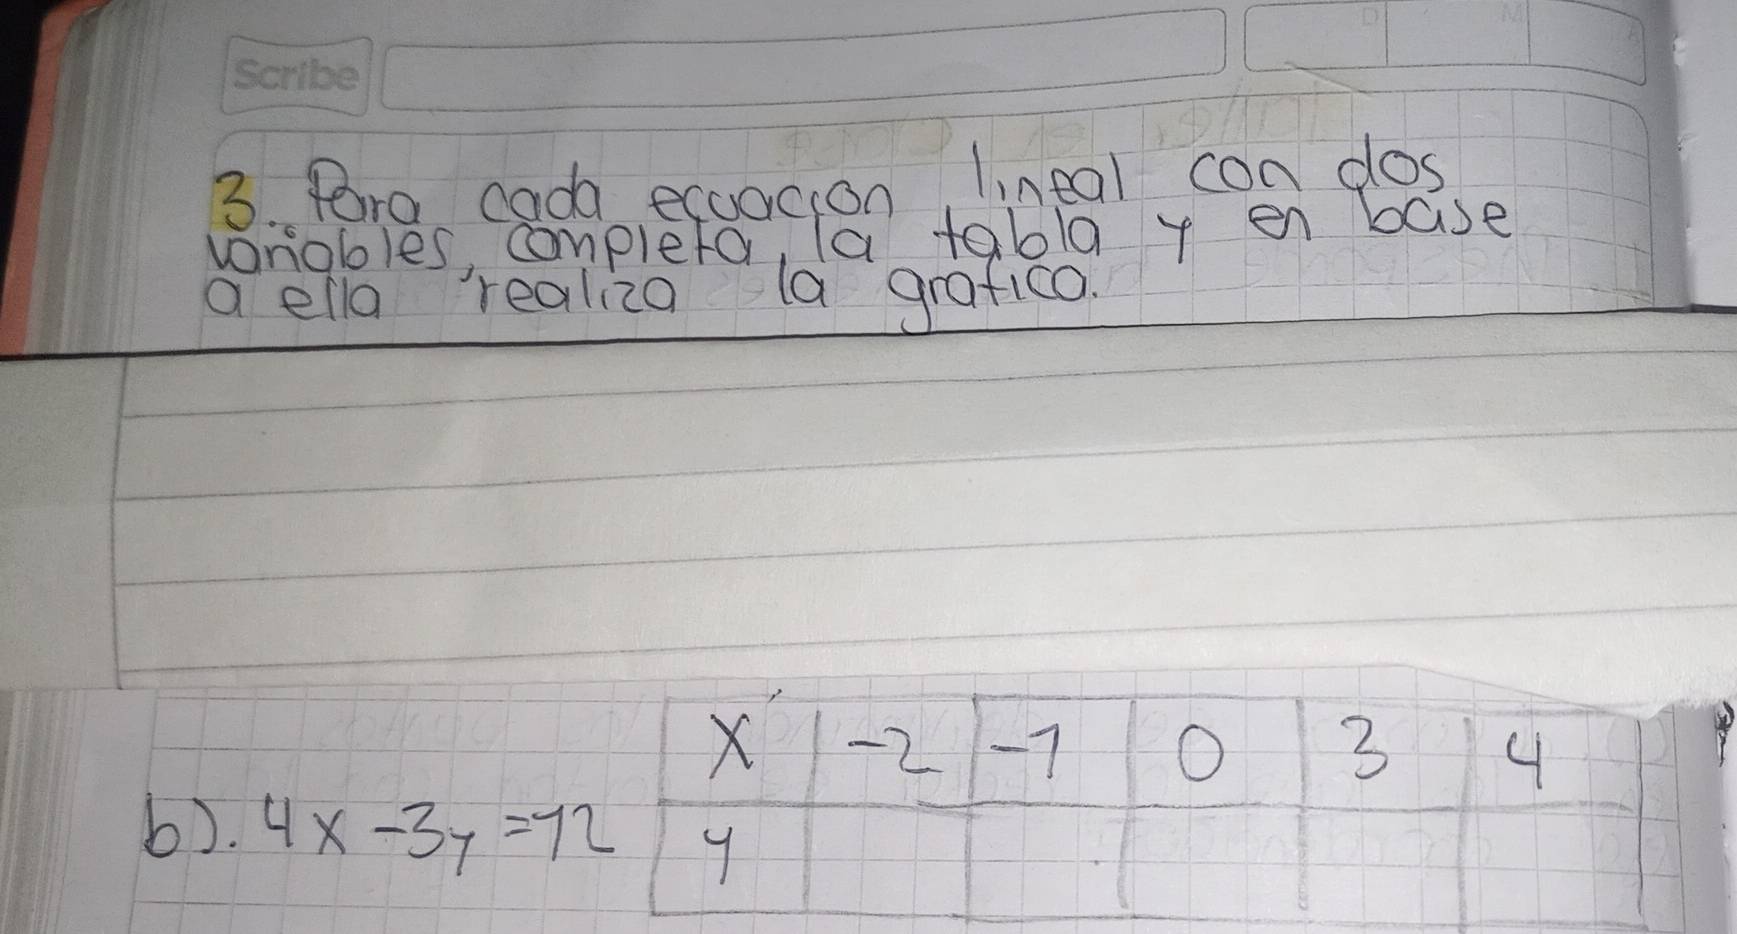 Scribe
D M A
3. Para cada ecuacion lineal con dos
variables, completa, la tabla y en base
a ella realiza la grafica.
X -2 -1 0 3 4
b). 4x -3y =12 y